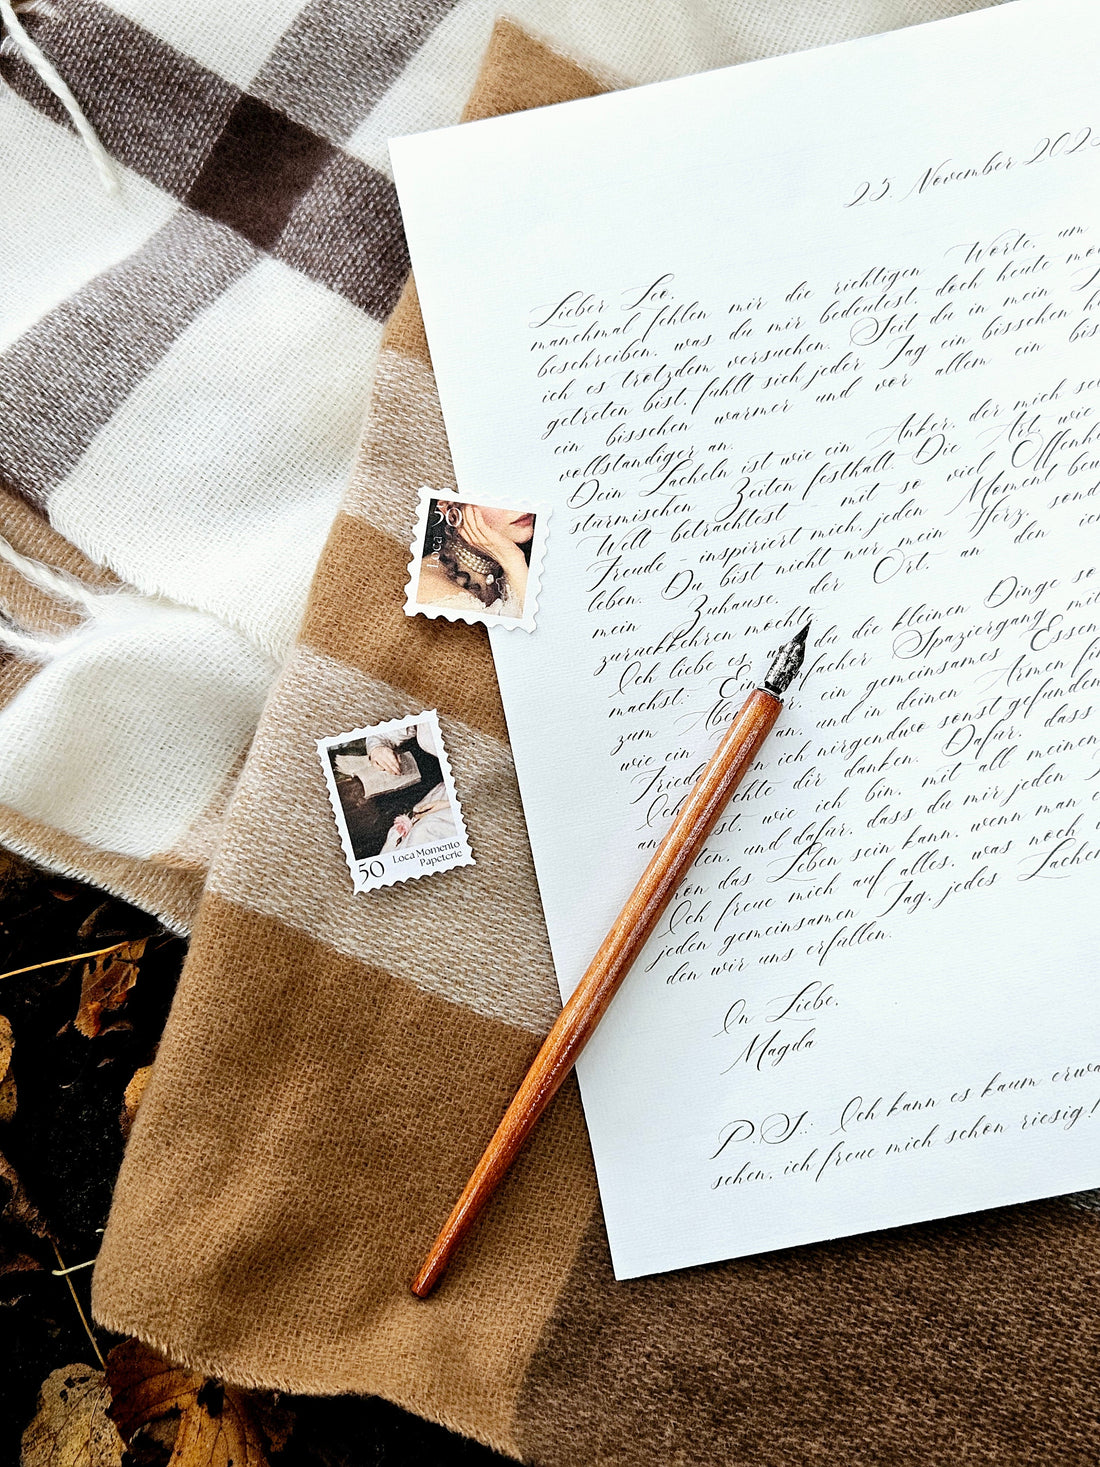 25. November 202
Lieber Leo,
manchmal fehlen mir die richtigen Worte, um
beschreiben, was du mir bedeutest, doch heute
ich es trotzdem versuchen. Seit du in mein
getreten bist, fühlt sich jeder Tag ein bisschen
ein bisschen wärmer und vor allem ein
vollständiger an.
Dein Lächeln ist wie ein Anker, der mich
stürmischen Zeiten festhält. Die Art, wie
Welt betrachtest - mit so viel
Freude - inspiriert mich, jeden Moment
leben. Du bist nicht nur mein Herz,
mein Zuhause, der Ort, an den
zurückkehren möchte.
Ich liebe es, du die kleinen Dinge so
machst: Ein Spaziergang
zum ein gemeinsames Essen
wie ein an, und in deinen Armen
ich nirgendwo sonst gefunden
Ich dir danken. Dafür, dass
wie ich bin, mit all meinen
und dafür, dass du mir jeden
das Leben sein kann, wenn man
Ich freue mich auf alles, was noch
jeden gemeinsamen Tag, jedes
den wir uns erfüllen.
In Liebe,
Magda
P.S.: Ich kann es kaum
sehen, ich freue mich schon riesig!
50
Loca
50 Loca Momento
Papeterie